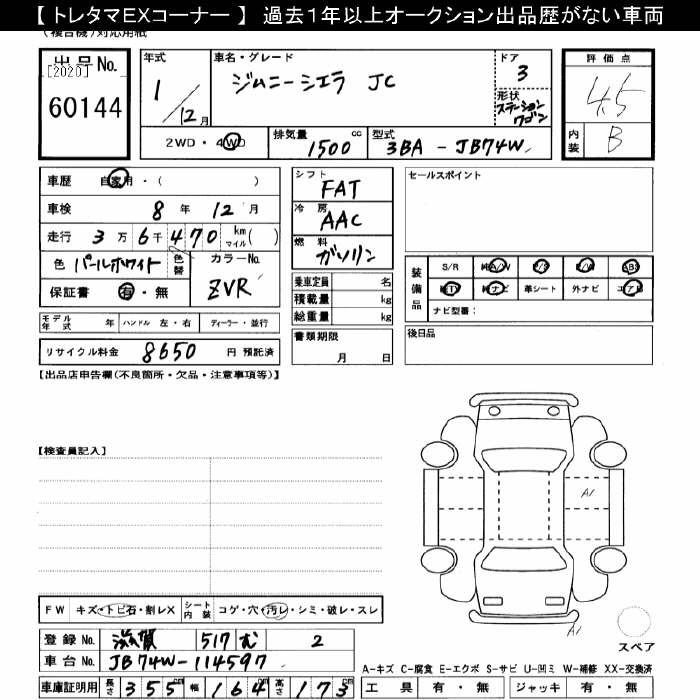 【 トレタマEXコーナー 】 過去1年以上オークション出品歴がない車両
(複合機)対応用紙
出品No.
[2020]
60144
年式
1/12月
車名・グレード
ジムニーシエラ JC
ドア
3
形状
ステーションワゴン
2WD・4WD
排気量
1500 cc
型式
3BA - JB74W
評価点
4.5
内装
B
車歴 自家用・( )
車検 8年12月
走行 3万6千470 km マイル( )
色 パールホワイト 色替
カラーNo.
ZVR
保証書 有・無
モデル年式 年 ハンドル 左・右 ディーラー・並行
リサイクル料金 8650 円 預託済
シフト
FAT
冷房
AAC
燃料
ガソリン
乗車定員 名
積載量 kg
総重量 kg
書類期限
月 日
セールスポイント
装備品
S/R 純A/W P/S P/W ABS
純TV 純ナビ 革シート 外ナビ エアB
ナビ型番:
後日品
【出品店申告欄(不良箇所・欠品・注意事項等)】
【検査員記入】
A1
A1
スペア
FW キズ・トビ石・割レX シート内装 コゲ・穴・汚レ・シミ・破レ・スレ
登録No. 滋賀 517 む 2
車台No. JB74W-114597
車庫証明用 長さ 355cm 幅 164cm 高さ 173cm
A-キズ C-腐食 E-エクボ S-サビ U-凹ミ W-補修 XX-交換済
工具 有・無 ジャッキ 有・無